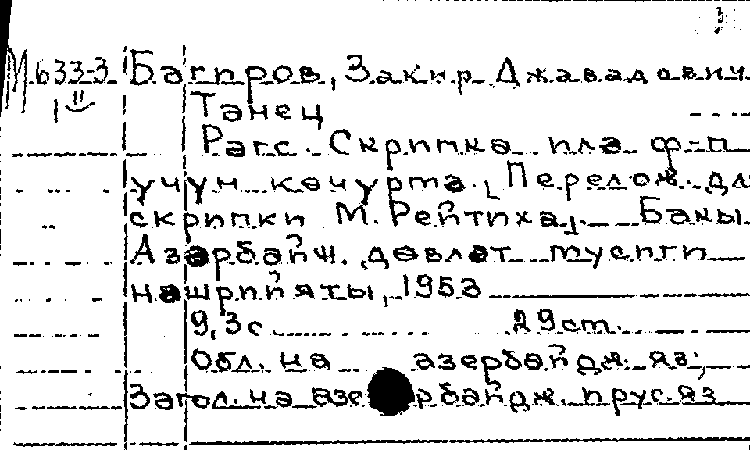 М 633-3 Багиров, Закир Джавадович
Танец
Рəгс. Скрипка илə ф-п
үчүн көчүрмə. [Перелож. дл
скрипки М. Рейтиха]. Бакы
Азəрбайҹ. дөвлəт мусиги
нəшрийяты, 1953
9, 3 с 29 cm.
Обл. на азербайдж. яз;
Загол. на азербайдж. и рус. яз